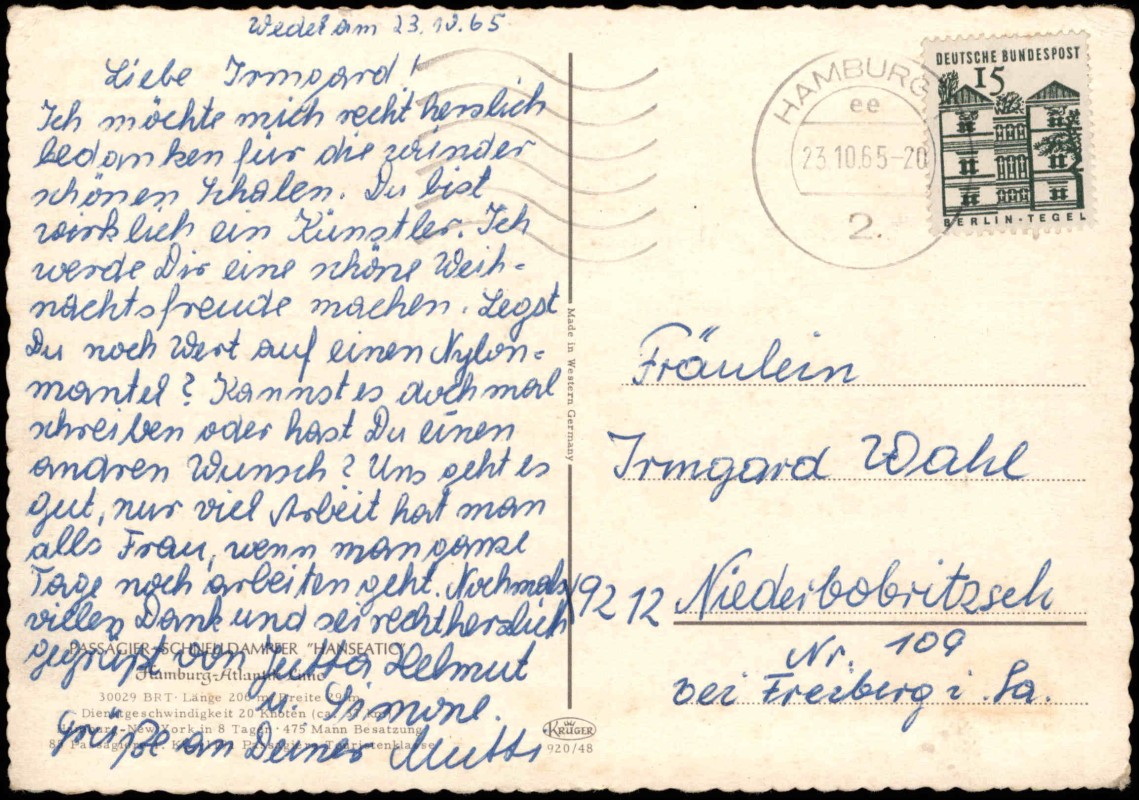 Wedel am 23.10.65
Liebe Irmgard!
Ich möchte mich recht herzlich
bedanken für die wunder
schönen Schalen. Du bist
wirklich ein Künstler. Ich
werde Dir eine schöne Weih-
nachtsfreude machen. Legst
Du noch Wert auf einen Nylon-
mantel? Kannst es doch mal
schreiben oder hast Du einen
andren Wunsch? Uns geht es
gut, nur viel Arbeit hat man
alls Frau, wenn man ganze
Tage noch arbeiten geht. Nochmals
villen Dank und sei recht herzlich
gegrüßt von Jutta Helmut
u. Simone.
Grüße an Deiner Mutti
PASSAGIER-SCHNELLDAMPFER "HANSEATIC"
Hamburg-Atlantik-Linie
30029 BRT · Länge 206 m · Breite
Dienstgeschwindigkeit 20 Knoten
New York in 8 Tagen · 475 Mann Besatzung
85 Passagiere Touristenklasse
Made in Western Germany
KRÜGER
920/48
HAMBURG
ee
23.10.65-20
2.
DEUTSCHE BUNDESPOST
15
BERLIN-TEGEL
Fräulein
Irmgard Wahl
9212 Niederbobritzsch
Nr. 109
bei Freiberg i. Sa.